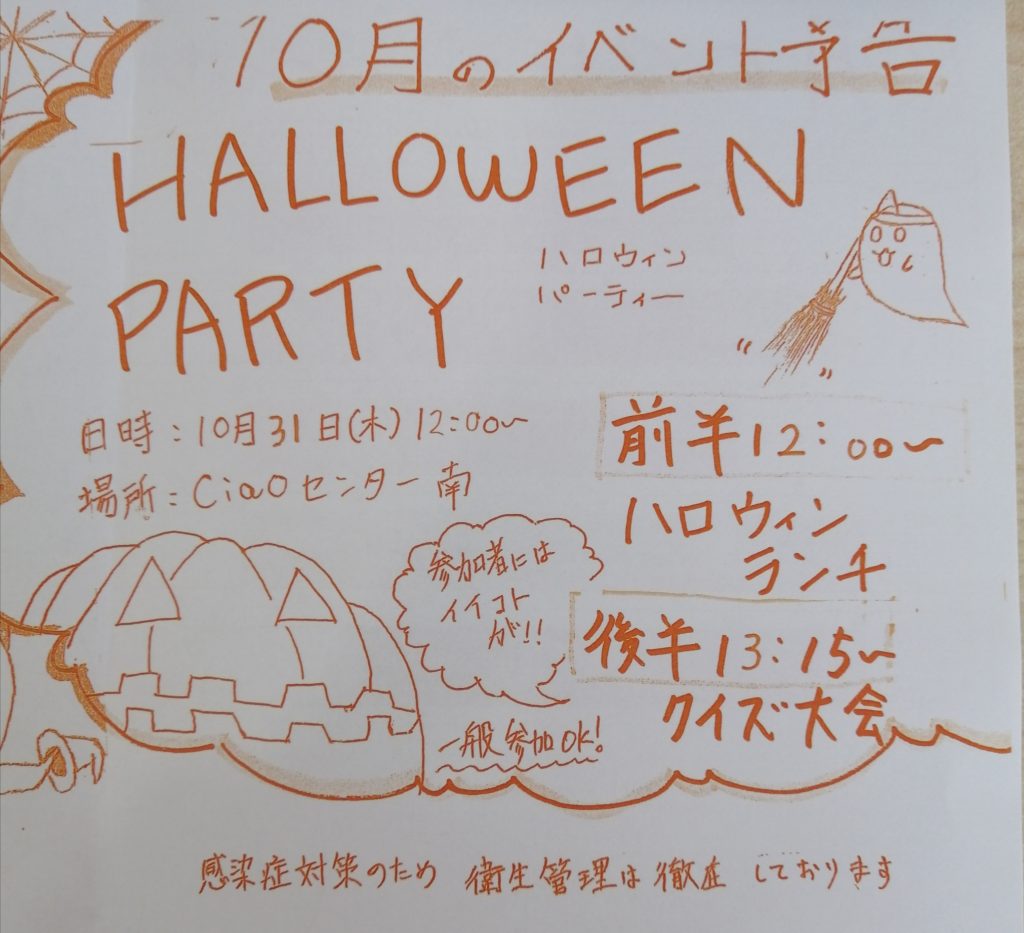 10月のイベント予告
HALLOWEEN
PARTY
ハロウィン
パーティー
日時：10月31日(木) 12:00〜
場所：Ciaoセンター南
前半12：00〜
ハロウィン
ランチ
後半13：15〜
クイズ大会
参加者には
イイコト
が!!
一般参加OK!
感染症対策のため 衛生管理は徹底しております